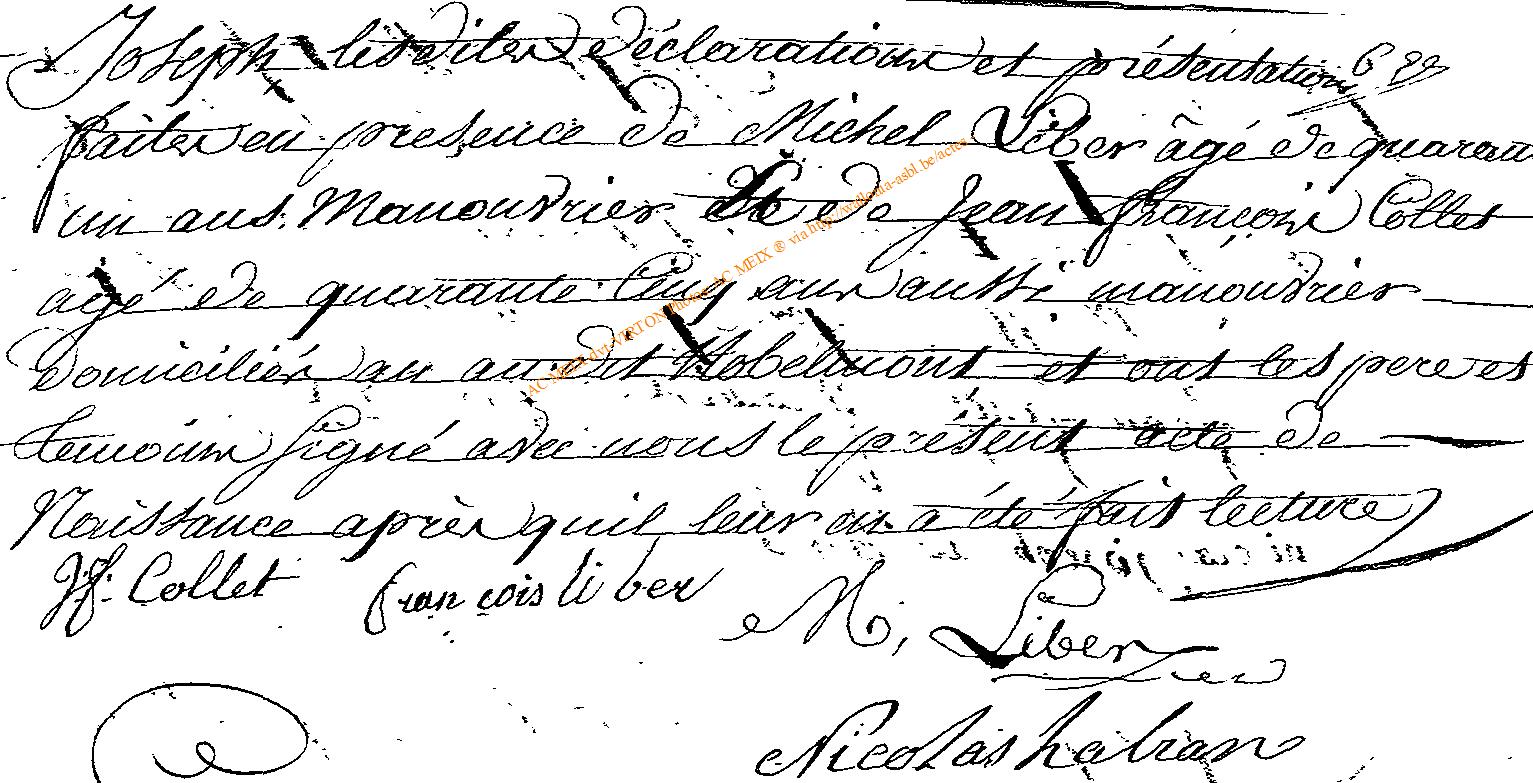 Joseph lesdites déclarations et présentations
faites en presence de Michel Liber âgé de quarante
un ans. Manouvrier et de Jean françois Collet
agé de quarante Cinq ans aussi manouvrier
domiciliés au audit Robelmont et ont les pere et
temoins signé avec nous le présent acte de
Naissance après quil leur en a été fait lecture
Jf. Collet françois liber M, Liber
Nicolas
AC MEIX dvt VIRTON Photos AC MEIX ® via http://wallonia-asbl.be/actes